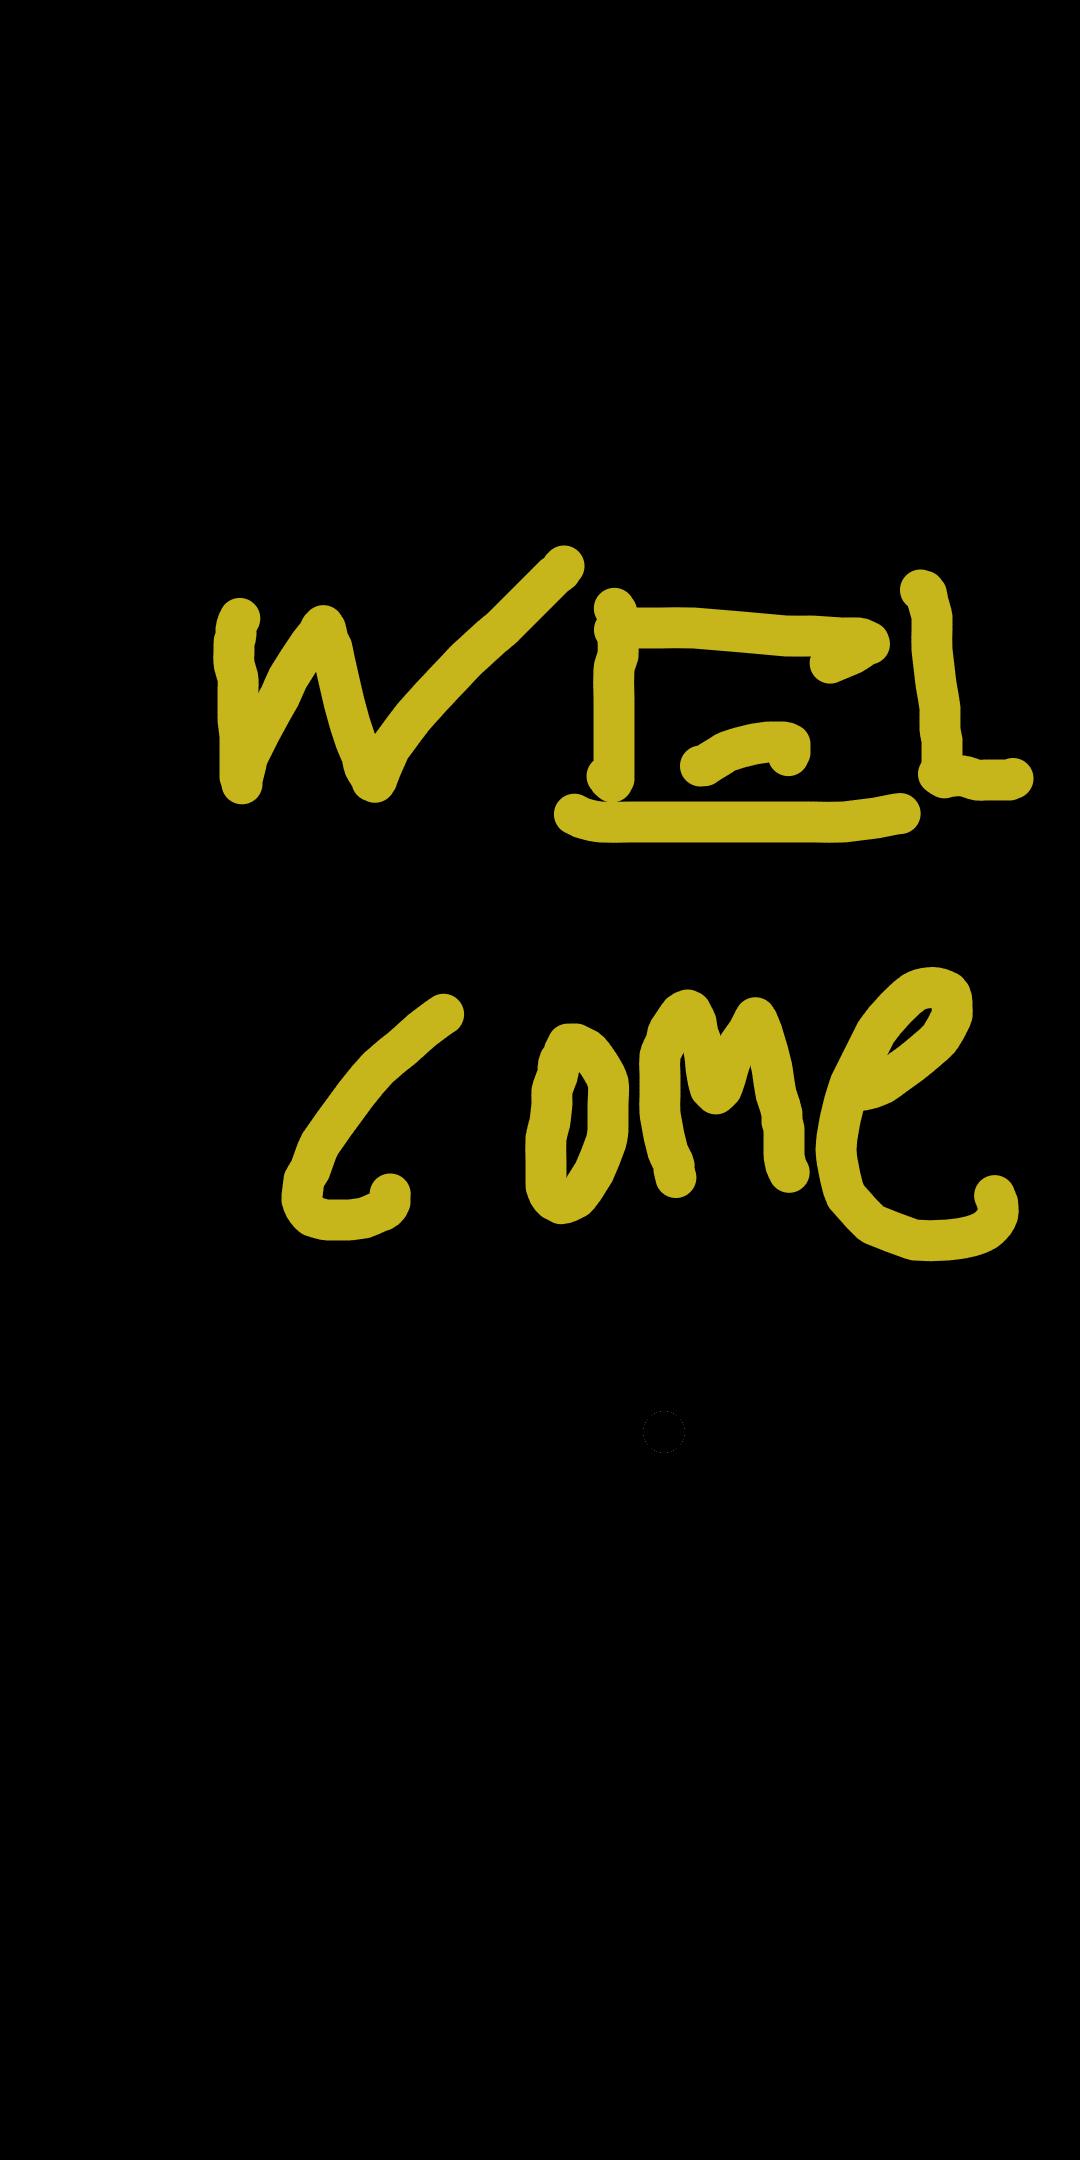 WEL
COMe